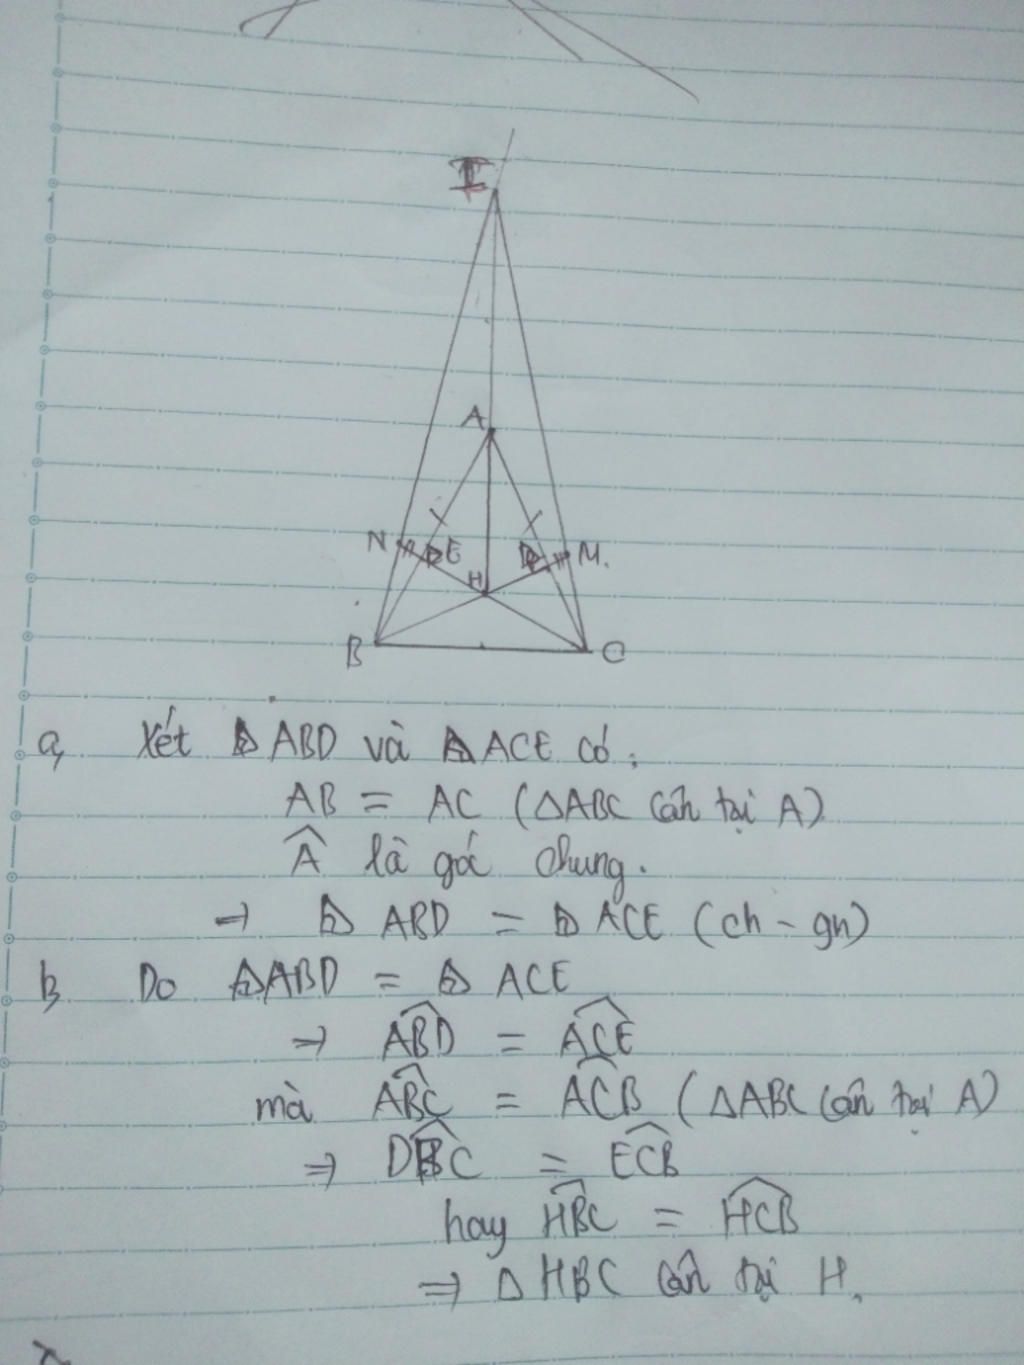 I
A
N E D M.
H
B C
a, Xét △ ABD và △ ACE có:
AB = AC (△ABC cân tại A)
Â là góc chung.
⇒ △ ABD = △ ACE (ch - gn)
b, Do △ABD = △ ACE
⇒ \widehat{ABD} = \widehat{ACE}
mà \widehat{ABC} = \widehat{ACB} (△ABC cân tại A)
⇒ \widehat{DBC} = \widehat{ECB}
hay \widehat{HBC} = \widehat{HCB}
⇒ △ HBC cân tại H.